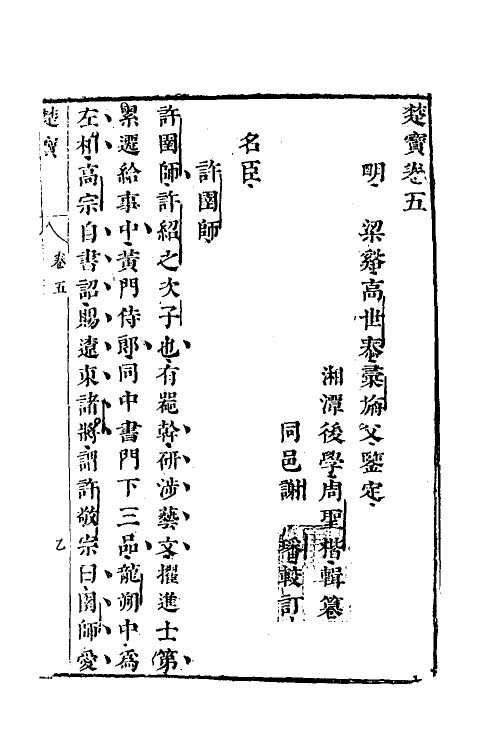 楚寶卷五
明 梁谿高世泰彚旃父鑒定
湘潭後學周聖楷輯纂
同邑謝 璠較訂
名臣
許圉師
許圉師許紹之次子也有噐幹研涉藝文擢進士第
累遷給事中黃門侍郎同中書門下三品龍朔中爲
左相高宗自書詔賜遼東諸將謂許敬宗曰圉師愛
楚寶 卷五 乙